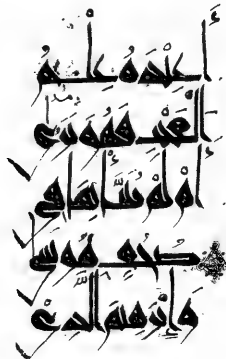 أَعِنْدَهُ عِلْمُ
الْغَيْبِ فَهُوَ يَرَى
أَمْ لَمْ يُنَبَّأْ بِمَا فِي
صُحُفِ مُوسَى
وَإِبْرَهِيمَ الَّذِي